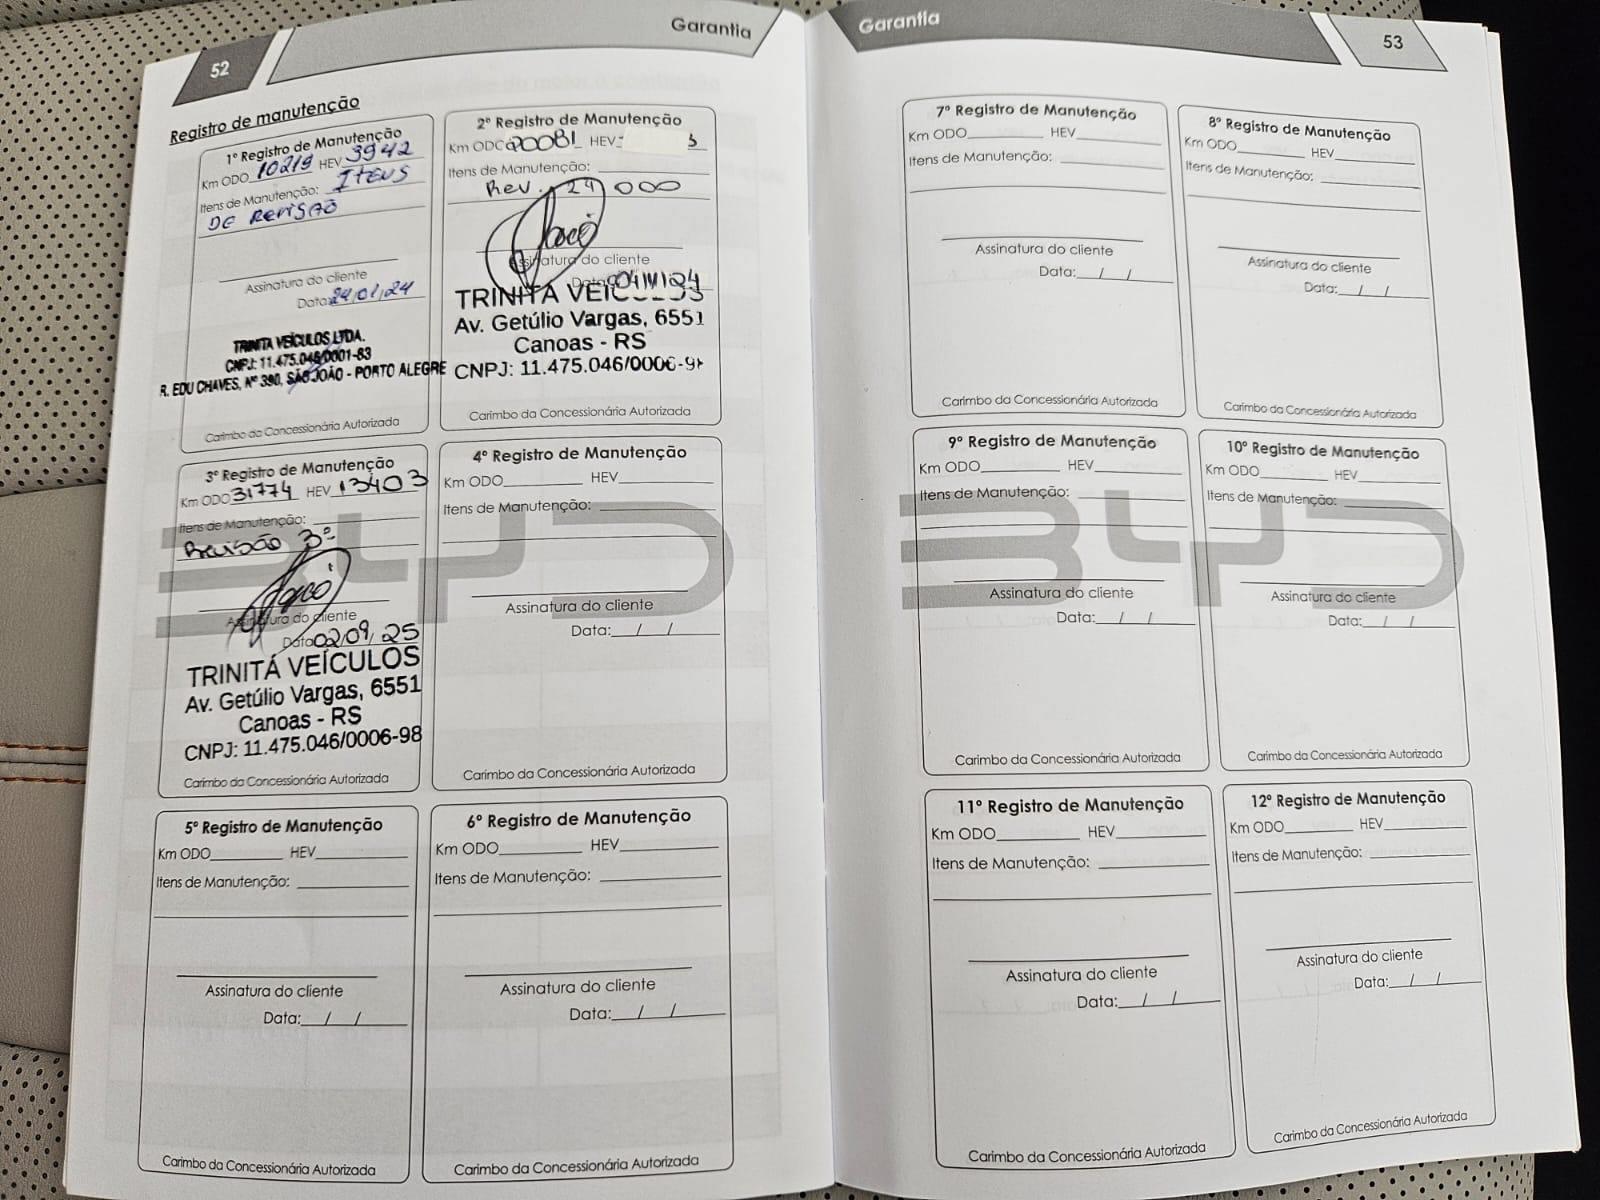 52
Garantia
Registro de manutenção
1º Registro de Manutenção
Km ODO 10219 HEV 3942
Itens de Manutenção: Itens
DE REVISÃO
Assinatura do cliente
Data: 24/01/24
TRINITA VEÍCULOS LTDA.
CNPJ: 11.475.046/0001-83
R. EDU CHAVES, Nº 390, SÃO JOÃO - PORTO ALEGRE
Carimbo da Concessionária Autorizada
2º Registro de Manutenção
Km ODO 20081 HEV
Itens de Manutenção:
Rev. 000
Assinatura do cliente
Data
TRINITÁ VEÍCULOS
Av. Getúlio Vargas, 6551
Canoas - RS
CNPJ: 11.475.046/0006-98
Carimbo da Concessionária Autorizada
3º Registro de Manutenção
Km ODO 31774 HEV 13403
Itens de Manutenção:
Revisão 3º
Assinatura do cliente
Data 02/09/25
TRINITÁ VEÍCULOS
Av. Getúlio Vargas, 6551
Canoas - RS
CNPJ: 11.475.046/0006-98
Carimbo da Concessionária Autorizada
4º Registro de Manutenção
Km ODO HEV
Itens de Manutenção:
Assinatura do cliente
Data: / /
Carimbo da Concessionária Autorizada
BYD
5º Registro de Manutenção
Km ODO HEV
Itens de Manutenção:
Assinatura do cliente
Data: / /
Carimbo da Concessionária Autorizada
6º Registro de Manutenção
Km ODO HEV
Itens de Manutenção:
Assinatura do cliente
Data: / /
Carimbo da Concessionária Autorizada
Garantia
53
7º Registro de Manutenção
Km ODO HEV
Itens de Manutenção:
Assinatura do cliente
Data: / /
Carimbo da Concessionária Autorizada
8º Registro de Manutenção
Km ODO HEV
Itens de Manutenção:
Assinatura do cliente
Data: / /
Carimbo da Concessionária Autorizada
9º Registro de Manutenção
Km ODO HEV
Itens de Manutenção:
Assinatura do cliente
Data: / /
Carimbo da Concessionária Autorizada
10º Registro de Manutenção
Km ODO HEV
Itens de Manutenção:
Assinatura do cliente
Data: / /
Carimbo da Concessionária Autorizada
BYD
11º Registro de Manutenção
Km ODO HEV
Itens de Manutenção:
Assinatura do cliente
Data: / /
Carimbo da Concessionária Autorizada
12º Registro de Manutenção
Km ODO HEV
Itens de Manutenção:
Assinatura do cliente
Data: / /
Carimbo da Concessionária Autorizada